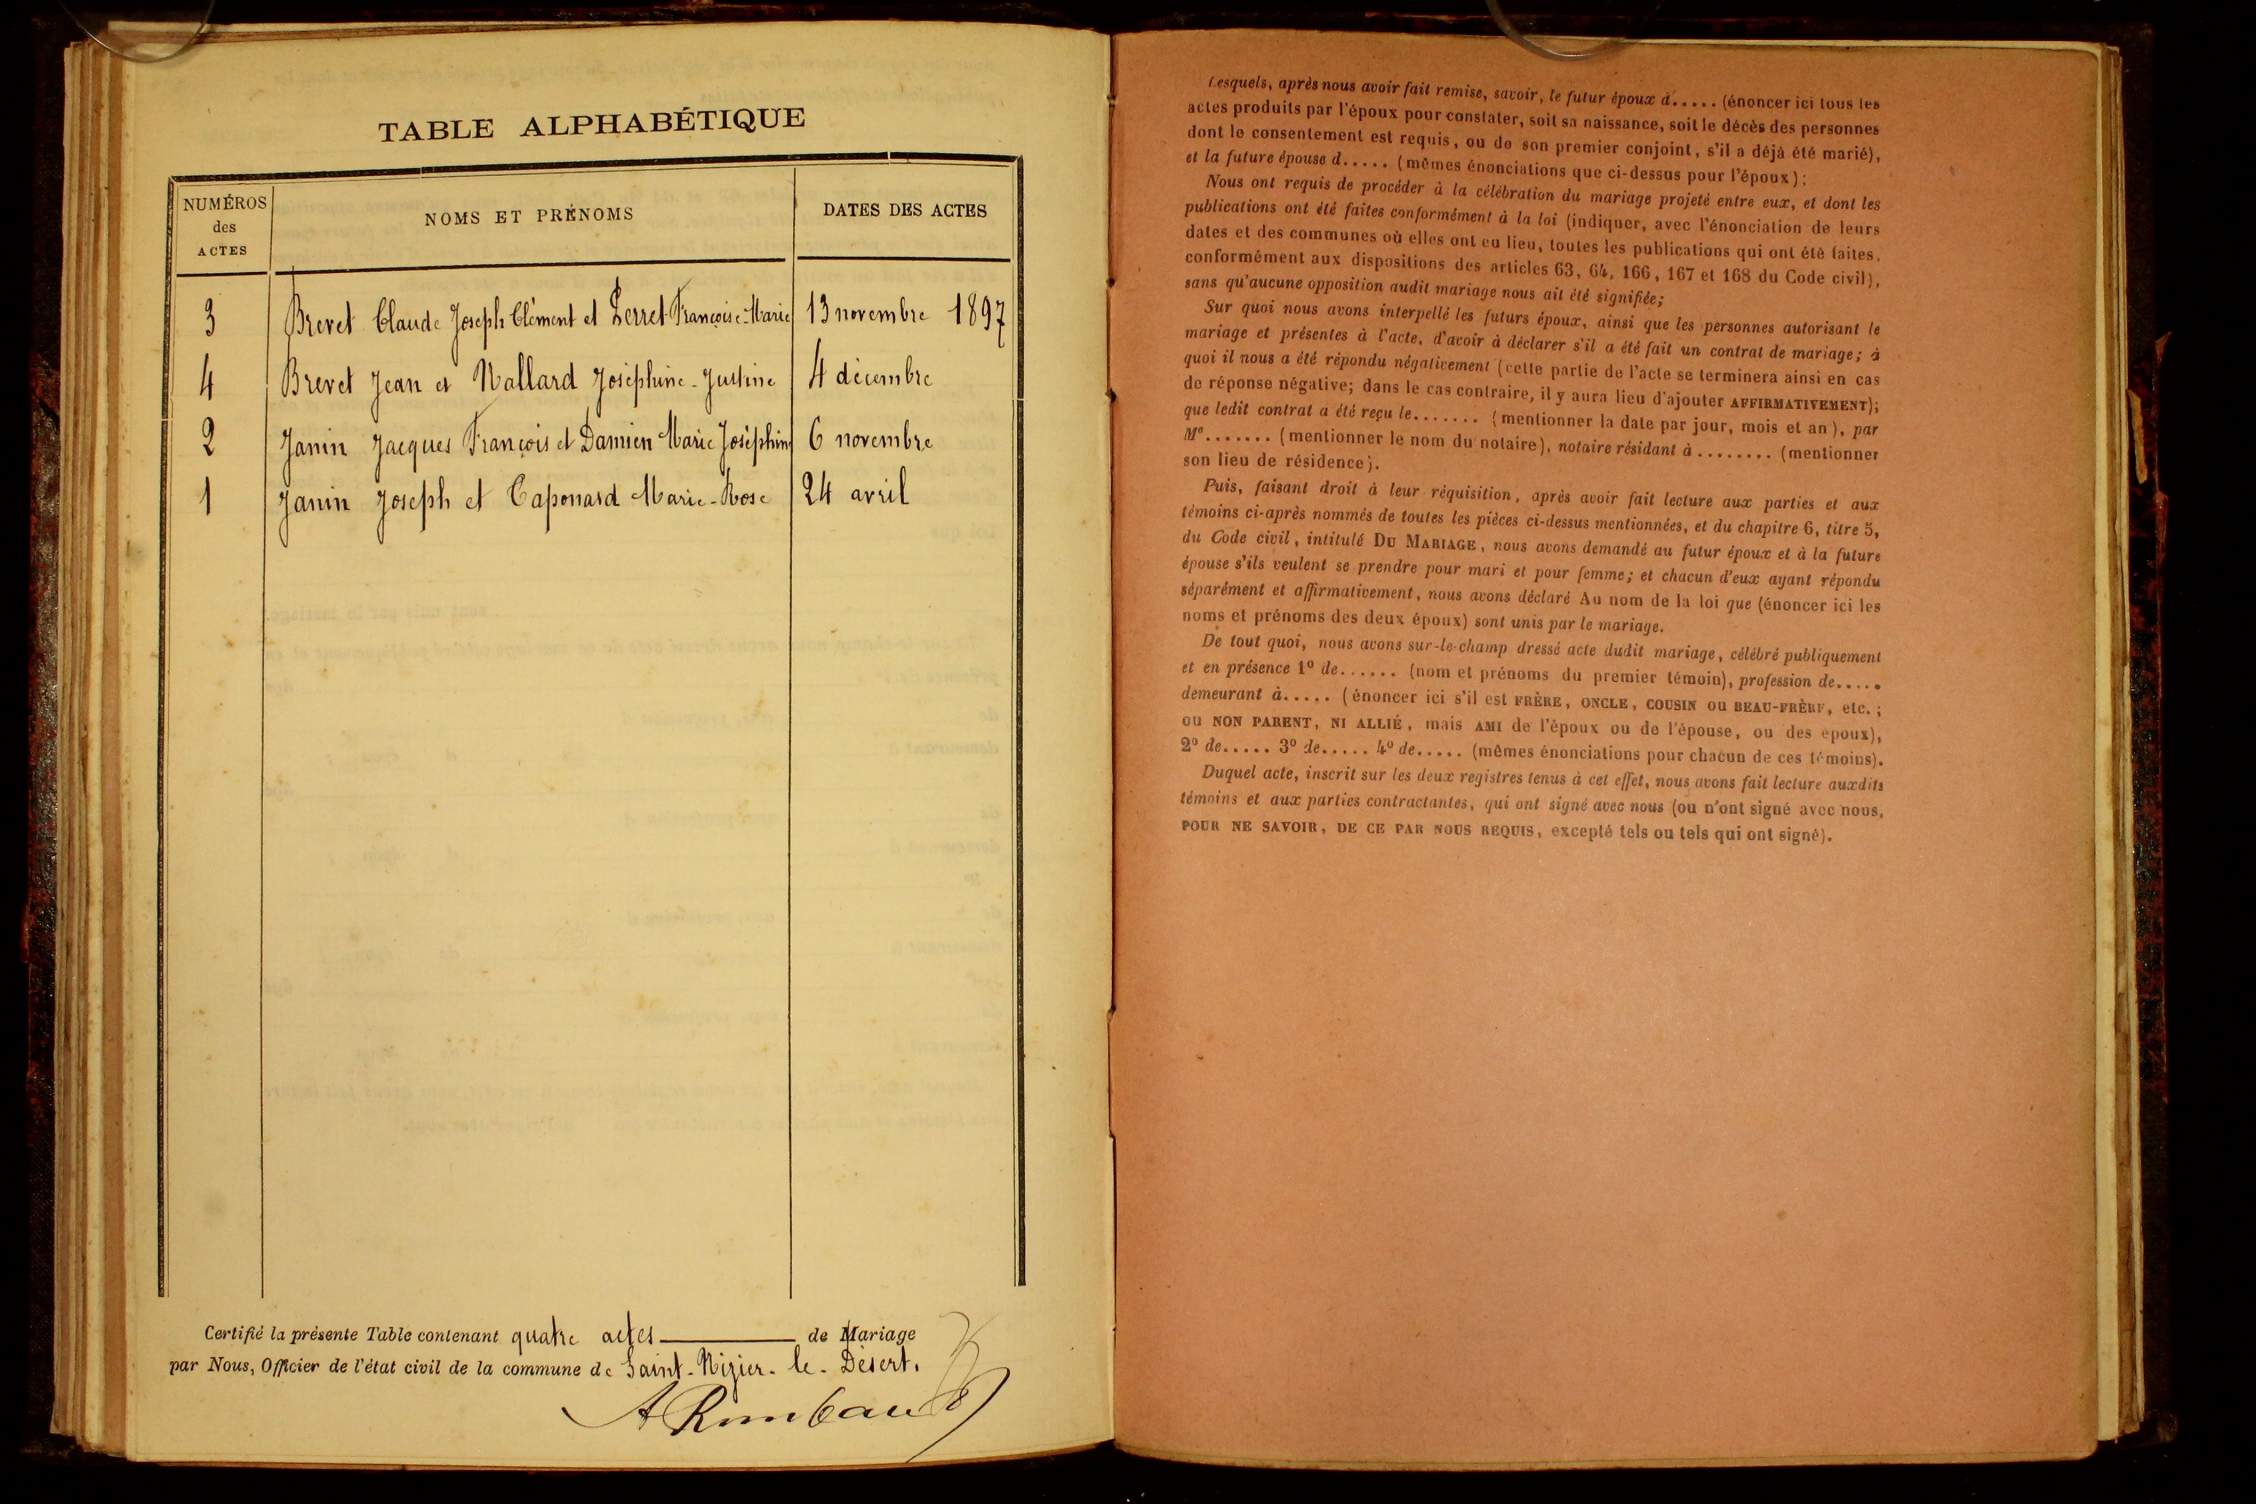 TABLE ALPHABÉTIQUE
NUMÉROS
des
ACTES
NOMS ET PRÉNOMS
DATES DES ACTES
3 Brevet Claude Joseph Clément et Perret Françoise-Marie 13 novembre 1897
4 Brevet Jean et Nallard Joséphine-Justine 4 décembre
2 Janin Jacques François et Damien Marie Joséphine 6 novembre
1 Janin Joseph et Caponard Marie-Rose 24 avril
Certifié la présente Table contenant quatre actes de Mariage
par Nous, Officier de l'état civil de la commune de Saint-Nizier-le-Désert.
Lesquels, après nous avoir fait remise, savoir, le futur époux d..... (énoncer ici tous les
actes produits par l'époux pour constater, soit sa naissance, soit le décès des personnes
dont le consentement est requis, ou de son premier conjoint, s'il a déjà été marié),
et la future épouse d..... (mêmes énonciations que ci-dessus pour l'époux);
Nous ont requis de procéder à la célébration du mariage projeté entre eux, et dont les
publications ont été faites conformément à la loi (indiquer, avec l'énonciation de leurs
dates et des communes où elles ont eu lieu, toutes les publications qui ont été faites,
conformément aux dispositions des articles 63, 64, 166, 167 et 168 du Code civil),
sans qu'aucune opposition audit mariage nous ait été signifiée;
Sur quoi nous avons interpellé les futurs époux, ainsi que les personnes autorisant le
mariage et présentes à l'acte, d'avoir à déclarer s'il a été fait un contrat de mariage; à
quoi il nous a été répondu négativement (cette partie de l'acte se terminera ainsi en cas
de réponse négative; dans le cas contraire, il y aura lieu d'ajouter AFFIRMATIVEMENT);
que ledit contrat a été reçu le....... (mentionner la date par jour, mois et an), par
Me....... (mentionner le nom du notaire), notaire résidant à ........ (mentionner
son lieu de résidence).
Puis, faisant droit à leur réquisition, après avoir fait lecture aux parties et aux
témoins ci-après nommés de toutes les pièces ci-dessus mentionnées, et du chapitre 6, titre 5,
du Code civil, intitulé DU MARIAGE, nous avons demandé au futur époux et à la future
épouse s'ils veulent se prendre pour mari et pour femme; et chacun d'eux ayant répondu
séparément et affirmativement, nous avons déclaré Au nom de la loi que (énoncer ici les
noms et prénoms des deux époux) sont unis par le mariage.
De tout quoi, nous avons sur-le-champ dressé acte dudit mariage, célébré publiquement
et en présence 1º de...... (nom et prénoms du premier témoin), profession de.....
demeurant à..... (énoncer ici s'il est FRÈRE, ONCLE, COUSIN ou BEAU-FRÈRE, etc.;
ou NON PARENT, NI ALLIÉ, mais AMI de l'époux ou de l'épouse, ou des époux),
2º de..... 3º de..... 4º de..... (mêmes énonciations pour chacun de ces témoins).
Duquel acte, inscrit sur les deux registres tenus à cet effet, nous avons fait lecture auxdits
témoins et aux parties contractantes, qui ont signé avec nous (ou n'ont signé avec nous,
POUR NE SAVOIR, DE CE PAR NOUS REQUIS, excepté tels ou tels qui ont signé).